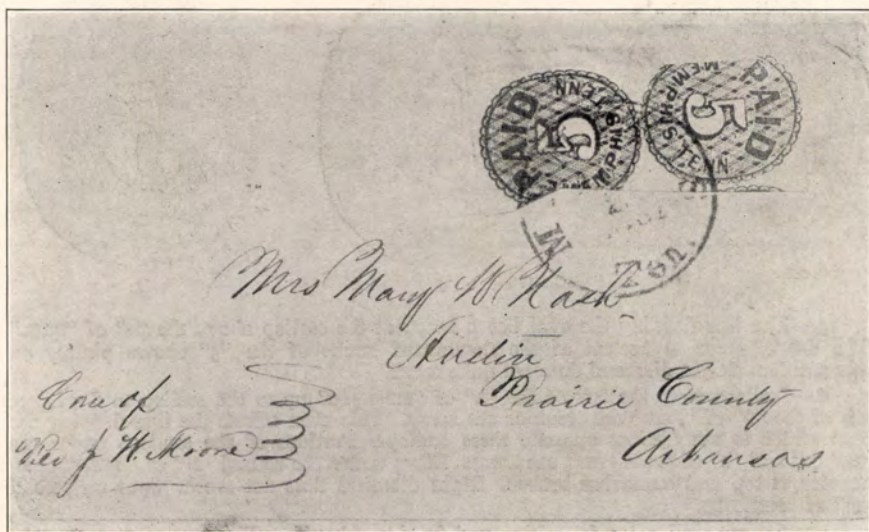 PAID
5
MEMPHIS TENN
PAID
5
MEMPHIS TENN
Mrs Mary W Nash
Austin
Prairie County
Arkansas
Care of
Rev J. W. Moore